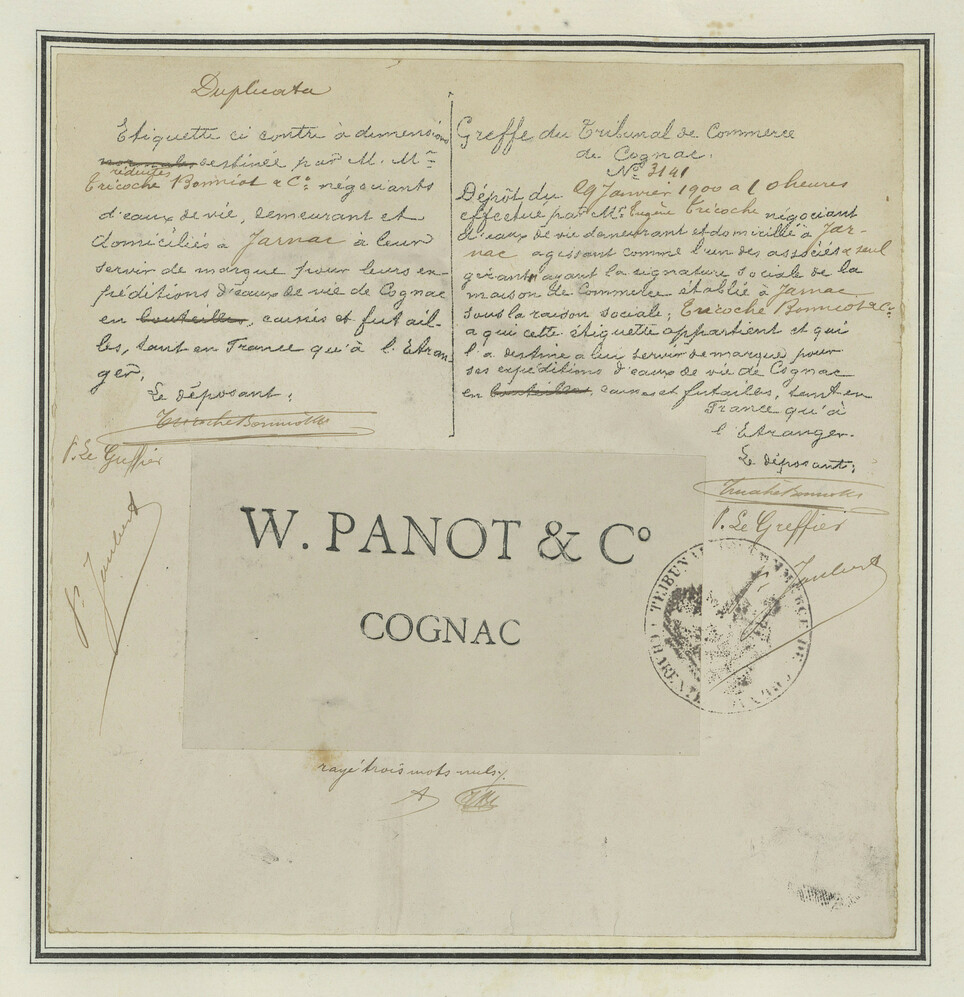 Duplicata
Etiquette ci contre à dimension
normale destinée par M. Mrs
réduites
Tricoche Bonniot & Co négociants
d'eaux de vie, demeurant et
domiciliés à Jarnac à leur
servir de marque pour leurs ex-
péditions d'eaux de vie de Cognac
en bouteilles, caisses et futail-
les, tant en France qu'à l'Etran-
ger.
Le déposant:
Tricoche Bonniot & Co
P. Le Greffier
P. Joubert
Greffe du Tribunal de Commerce
de Cognac.
No 3141
Dépôt du 29 Janvier 1900 à 10 heures
effectué par Mr Eugène Tricoche négociant
d'eaux de vie demeurant et domicilié à Jar-
nac agissant comme l'un des associés & seul
gérant ayant la signature sociale de la
maison de Commerce établie à Jarnac
sous la raison sociale; Tricoche Bonniot & Co
a qui cette étiquette appartient et qui
l'a destine à lui servir de marque pour
ses expéditions d'eaux de vie de Cognac
en bouteilles, caisses et futailles, tant en
France qu'à
l'Etranger.
Le déposant:
Tricoche Bonniot & Co
P. Le Greffier
Joubert
W. PANOT & Co
COGNAC
TRIBUNAL DE COMMERCE DE COGNAC
CHARENTE
rayé trois mots nuls.